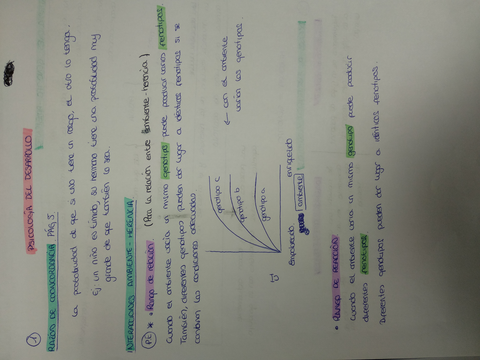 1
PSICOLOGÍA DEL DESARROLLO
RATIOS DE CONCORDANCIA PAG 5
La probabilidad de que si uno tiene un rasgo, el otro lo tenga.
Ej: un niño es tímido, su hermano tiene una probabilidad muy
grande de que también lo sea.
INTERACCIONES AMBIENTE-HERENCIA
(PE) * • Rango de reacción (Para la relación entre Ambiente-herencia)
Cuando el ambiente varía un mismo genotipo puede producir varios fenotipos
También, diferentes genotipos pueden dar lugar a idénticos fenotipos si se
combinan las condiciones
genotipo c
genotipo b
genotipo a
← con el ambiente
varían los genotipos
Empobrecido
ambiente
enriquecido
• RANGO DE REACCIÓN
Cuando el ambiente varía un mismo genotipo puede producir
diferentes fenotipos
Diferentes genotipos pueden dar lugar a idénticos fenotipos.